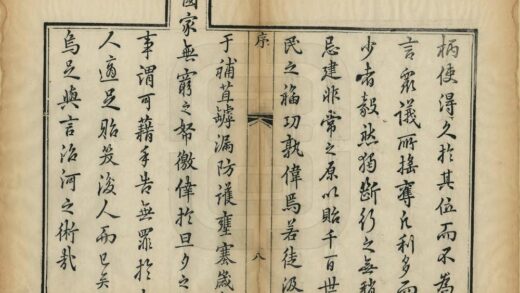 柄使得久於其位而不為
言衆議所搖奪凡利多而
少者毅然獨斷行之無稍
忌建非常之原以貽千百世
民之福功孰偉焉若徒汲
序
八
于補苴罅漏防護壅塞歲
國家無窮之帑徼倖於旦夕之
事謂可藉手告無罪於
人適足貽笑後人而已矣
烏足與言治河之術哉